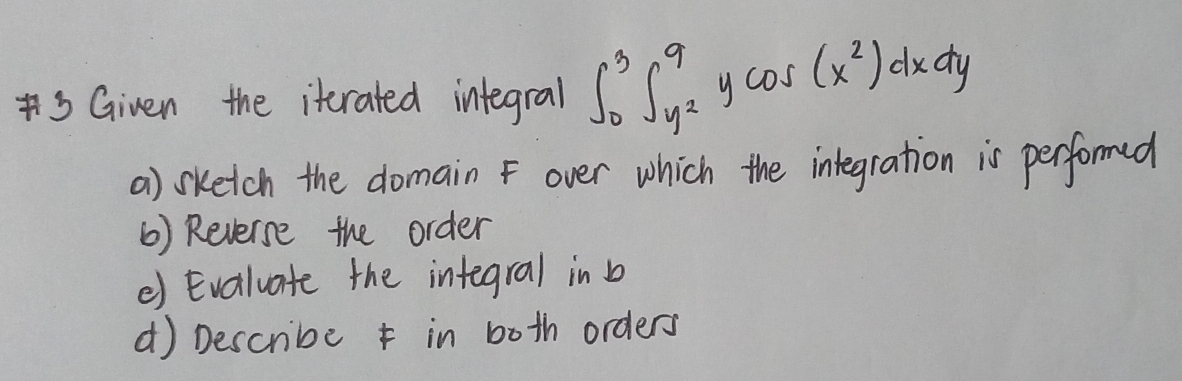 #3 Given the iterated integral ∫₀³ ∫_{y²}^9 y cos (x²) dx dy
a) sketch the domain F over which the integration is performed
b) Reverse the order
c) Evaluate the integral in b
d) Describe F in both orders